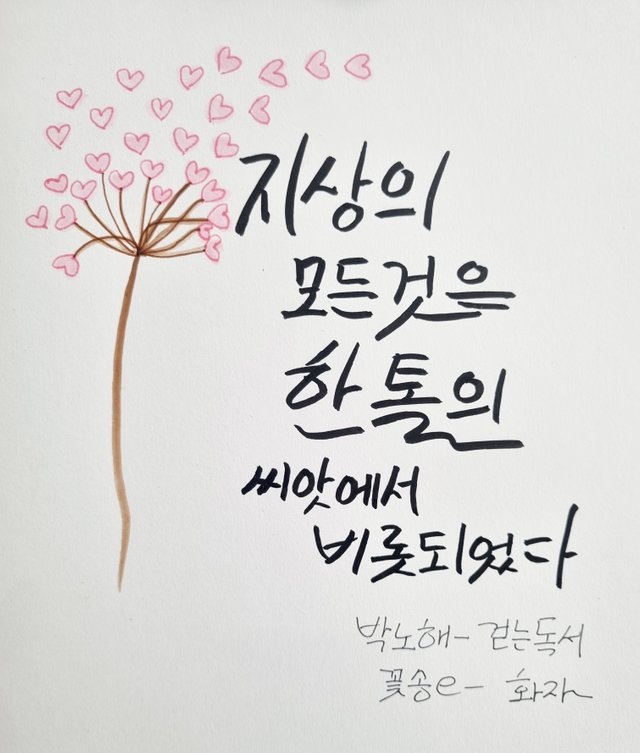 지상의
모든것은
한톨의
씨앗에서
비롯되었다
박노해- 걷는독서
꽃송e- 화자~